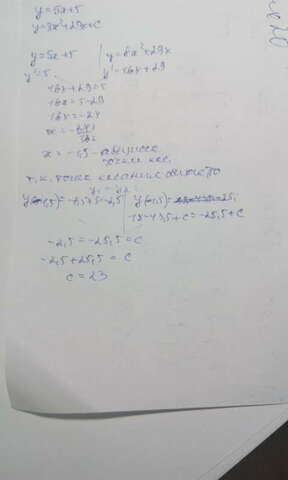 y=5x+5
y=8x²+29x+c
y=5x+5 | y=8x²+29x
y'=5 | y'=16x+29
16x+29=5
16x=5-29
16x=-24
x=-24/16
x=-1,5 - абцисса
точки кас.
т.к. точка касания
-7,5+5=-2,5
-18-43,5+c=-25,5+c
-2,5=-25,5=c
-2,5+25,5=c
c=23